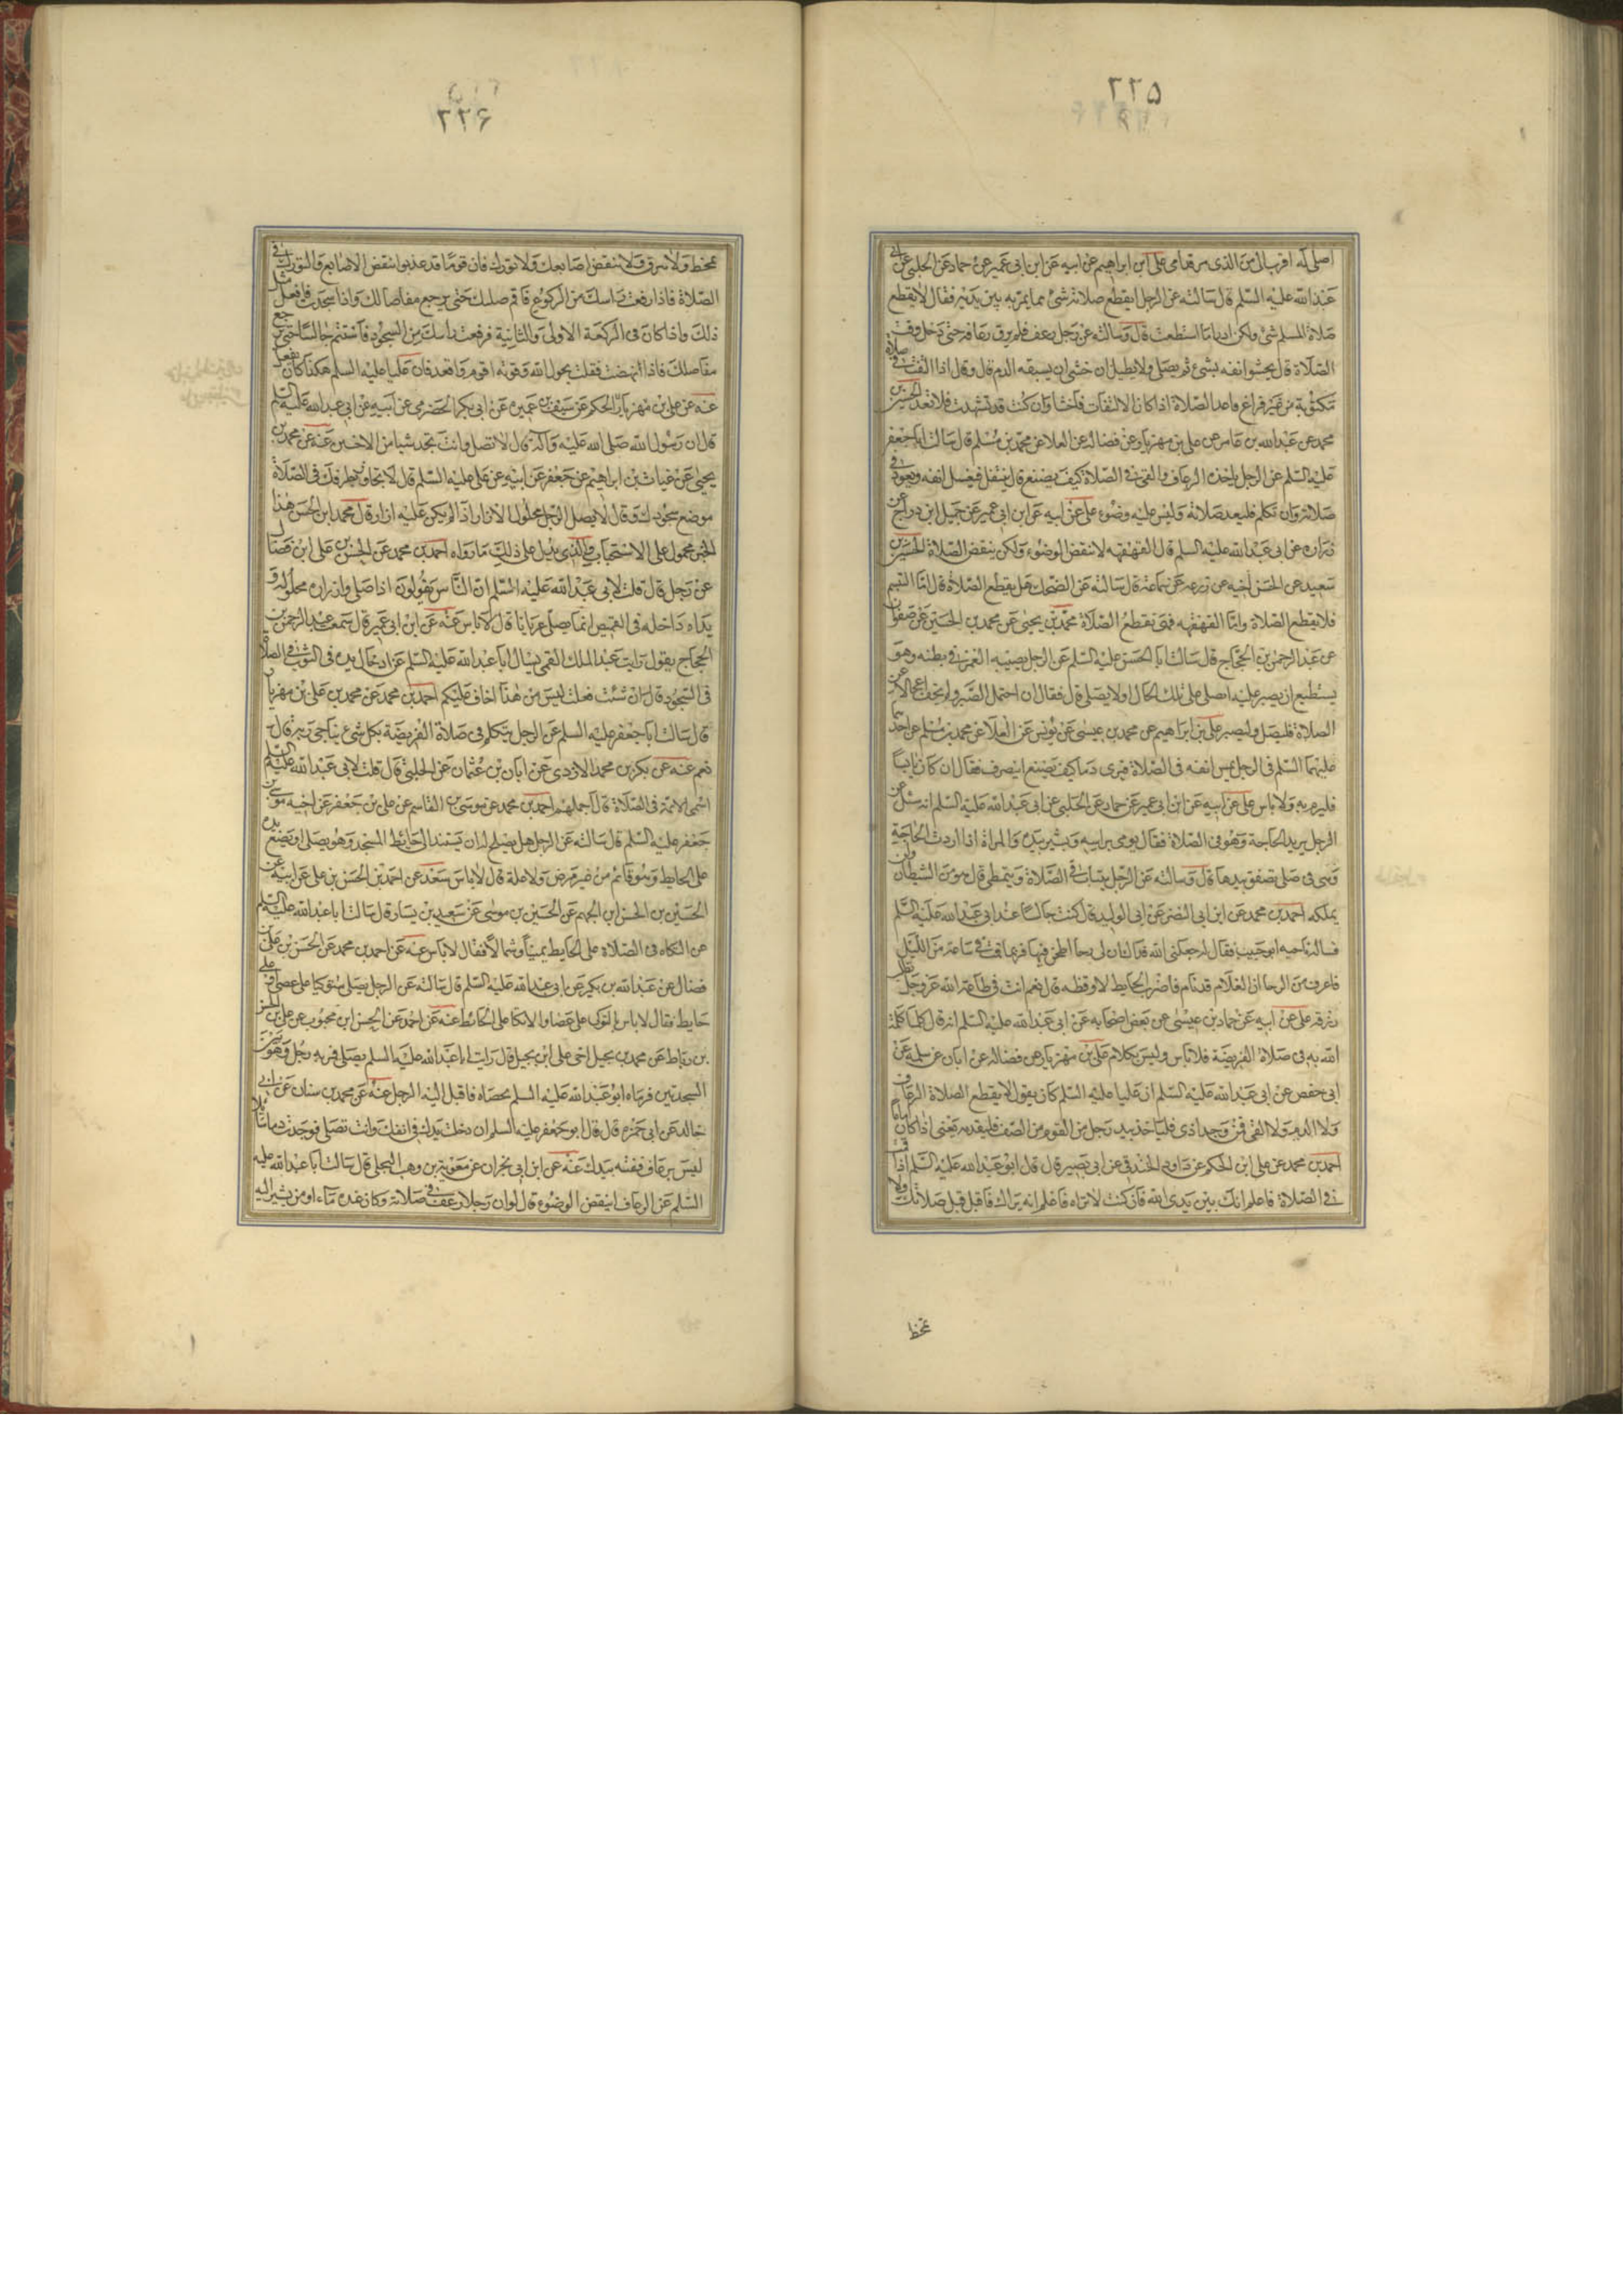 ٢٢۵
اصلى له اقرب الى من الذى مر قدامى على ابن ابراهيم عن ابيه عن ابن ابى عمير عن حماد عن الحلبى عن ابى
عبد الله عليه السلم قال سالته عن الرجل ايقطع صلاته شئ مما يمر به بين يديه فقال لا يقطع
صلاة المسلم شئ ولكن ادرا ما استطعت قال وسالته عن رجل رعف فلم يرق رعافه حتى دخل وقت
الصلاة قال يحشوا انفه بشئ ثم يصلى ولا يطيل ان خشى ان يسبقه الدم قال وقال اذا التفت فى صلاة
مكتوبة من غير فراغ فاعد الصلاة اذا كان الالتفات فاحشا وان كنت قد تشهدت فلا تعد الحسين بن
محمد عن عبد الله بن عامر عن على بن مهزيار عن فضالة عن العلا عن محمد بن مسلم قال سالت ابا جعفر
عليه السلم عن الرجل ياخذه الرعاف والقى فى الصلاة كيف يصنع قال ينفتل فيغسل انفه ويعود فى
صلاته وان تكلم فليعد صلاته وليس عليه وضوء على عن ابيه عن ابن ابى عمير عن جميل ابن دراج عن
زراره عن ابى عبد الله عليه السلم قال القهقهه لا تنقض الوضوء ولكن ينقض الصلاة الحسين بن
سعيد عن الحسن اخيه عن زرعه عن سماعة قال سالته عن الضحك هل يقطع الصلاة قال اما التبسم
فلا يقطع الصلاة واما القهقهه فهى تقطع الصلاة محمد بن يحيى عن محمد بن الحسين عن صفوان
عن عبد الرحمن بن الحجاج قال سالت ابا الحسن عليه السلم عن الرجل يصيبه الغمز فى بطنه وهو
يستطيع ان يصبر عليه ايصلى على تلك الحال او لا يصلى قال فقال ان احتمل الصبر ولم يخف اعجالا عن
الصلاة فليصل وليصبر على بن ابراهيم عن محمد بن عيسى عن يونس عن العلا عن محمد بن مسلم عن احدهما
عليهما السلم فى الرجل يمس انفه فى الصلاة فيرى دما كيف يصنع اينصرف فقال ان كان يابسا
فليرم به ولا باس على عن ابيه عن ابن ابى عمير عن حماد عن الحلبى عن ابى عبد الله عليه السلم انه سئل عن
الرجل يريد الحاجة وهو فى الصلاة فقال يومى براسه ويشير بيده والمراة اذا اردت الحاجة
وهى فى صلى تصفق بيدها قال وسالته عن الرجل يتثاب فى الصلاة ويتمطى قال هو من الشيطان ولن
يملكه احمد بن محمد عن ابن ابى النصر عن ابى الوليد قال كنت جالسا عند ابى عبد الله عليه السلم
فساله ناجيه ابو حبيب فقال له جعلنى الله فداك ان لى رحا اطحن فيها فربما قمت فى ساعة من الليل
فاعرف من الرحا ان الغلام قد نام فاضرب الحايط لاوقظه قال نعم انت فى طاعة الله عز وجل تطلب
رزقه على عن ابيه عن حماد بن عيسى عن بعض اصحابه عن ابى عبد الله عليه السلم انه قال كلما كلمت
الله به فى صلاة الفريضة فلا باس وليس بكلام على بن مهزيار عن فضاله عن ابان عن سلمه عن
ابى حفص عن ابى عبد الله عليه السلم ان عليا عليه السلم كان يقول لا يقطع الصلاة الرعاف
ولا الدم ولا القى فمن وجد اذى فلياخذ بيد رجل من القوم من الصف فليقدمه يعنى اذا كان اماما
احمد بن محمد عن على ابن الحكم عن داود الخندقى عن ابى بصير قال قال ابو عبد الله عليه السلم اذا قمت
فى الصلاة فاعلم انك بين يدى الله فان كنت لا تراه فاعلم انه يراك فاقبل قبل صلاتك ولا
تمخط
٢٢۶
تمخط ولا تبزق ولا تنقض اصابعك ولا تورك فان قوما قد عذبوا بنقض الاصابع والتورك فى
الصلاة فاذا رفعت راسك من الركوع فاقم صلبك حتى يرجع مفاصلك واذا سجدت فافعل مثل
ذلك واذا كان فى الركعة الاولى والثانية فرفعت راسك من السجود فاستتم جالسا حتى يرجع
مفاصلك فاذا نهضت فقلت بحول الله وقوته اقوم واقعد فان عليا عليه السلم هكذا كان يفعل
عنه عن على بن مهزيار الحكم عن سيف بن عميره عن ابى بكر الحضرمى عن ابيه عن ابى عبد الله عليه السلم
قال ان رسول الله صلى الله عليه وآله قال لا تصل وانت تجد شيا من الاخبثين عنه عن محمد بن
يحيى عن غياث بن ابراهيم عن جعفر عن ابيه عن على عليه السلم قال لا يجاوز بطرفك فى الصلاة
موضع سجودك وقال لا يصل الرجل محلول الازار اذا لم يكن عليه ازار قال محمد ابن الحسن هذا
الخبر محمول على الاستحباب والذى يدل على ذلك ما رواه احمد بن محمد عن الحسن بن على ابن فضال
عن رجل قال قلت لابى عبد الله عليه السلم ان الناس يقولون اذا صلى وازراره محلوله و
يداه داخله فى القميص انما يصلى عريانا قال لا باس عنه عن ابن ابى عمير قال سمعت عبد الرحمن بن
الحجاج يقول رايت عبد الملك القمى يسال ابا عبد الله عليه السلم عن ادخال يده فى الثوب فى الصلاة
فى السجود قال ان شئت فعلت ليس من هذا اخاف عليكم احمد بن محمد عن محمد بن على بن مهزيار
قال سالت ابا جعفر عليه السلم عن الرجل يتكلم فى صلاة الفريضة بكل شئ يناجى ربه قال
نعم عنه عن بكر بن محمد الازدى عن ابان بن عثمان عن الحلبى قال قلت لابى عبد الله عليه السلم
اسمى الائمة فى الصلاة قال اجملهم احمد بن محمد عن موسى بن القاسم عن على بن جعفر عن اخيه موسى بن
جعفر عليه السلم قال سالته عن الرجل هل يصلح له ان يستند الى حائط المسجد وهو يصلى او يضع يده
على الحايط وهو قائم من غير مرض ولا علة قال لا باس سعد عن احمد بن الحسن بن على عن ابيه عن
الحسين بن الحسن ابن الجهم عن الحسين بن موسى عن سعيد بن يسار قال سالت ابا عبد الله عليه السلم
عن التكاه فى الصلاة على الحايط يمينا وشمالا فقال لا باس عنه عن احمد بن محمد عن الحسن بن على بن
فضال عن عبد الله بن بكير عن ابى عبد الله عليه السلم قال سالته عن الرجل يصلى متوكيا على عصى او على
حايط فقال لا باس بالتوكى على عصا والاتكا على الحائط عنه عن احمد عن الحسن ابن محبوب عن على بن الحسن
بن رباط عن محمد بن بجيل اخى على ابن بجيل قال رايت ابا عبد الله عليه السلم يصلى فمر به رجل وهو بين
السجدتين فرماه ابو عبد الله عليه السلم بحصاه فاقبل اليه الرجل عنه عن محمد بن سنان عن ابى
خالد عن ابى حمزه قال قال ابو جعفر عليه السلم ان دخلت يدك فى انفك وانت تصلى فوجدت دما سائلا
ليس برعاف ففته بيدك عنه عن ابن ابى نجران عن معوية بن وهب البجلى قال سالت ابا عبد الله عليه
السلم عن الرعاف اينقض الوضوء قال لو ان رجلا رعف فى صلاته وكان عنده ماء او من يشير اليه